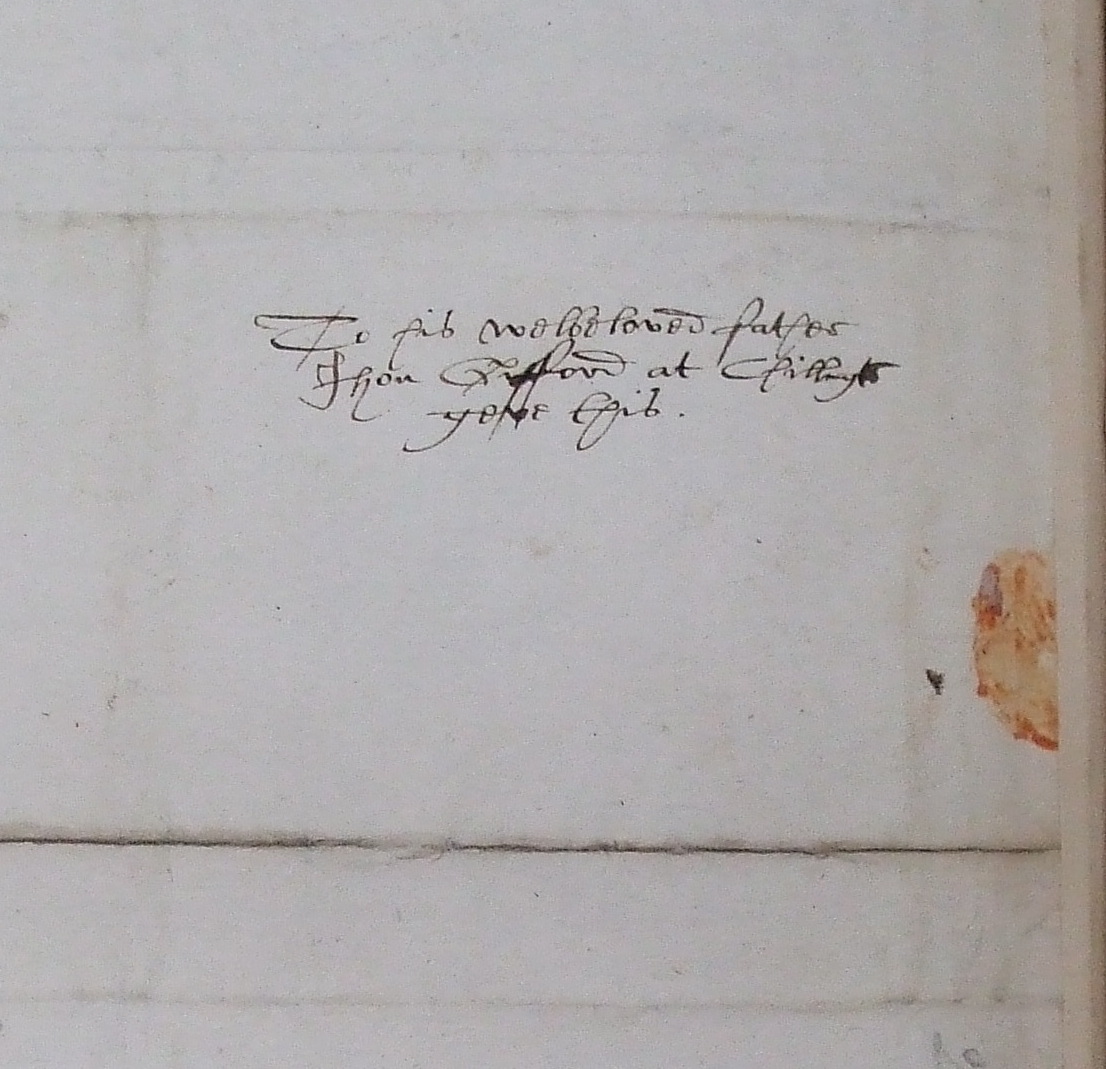 To his welbeloved father
Jhon Gifford at
yeve this.